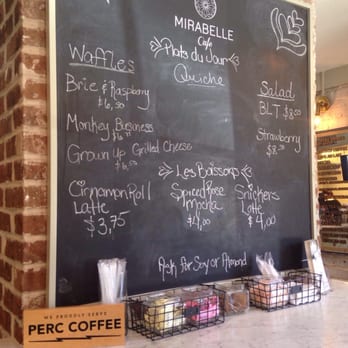 MIRABELLE
Cafe
Plats du Jour
Waffles
Brie & Raspbary
$6,50
Monkey Business
Grown Up Grilled Cheese
Quiche
Salad
BLT $8.50
Strawberry
$8.50
Les Boissons
Cinnamon Roll
Latte
$3,75
Spiced Rose
mocha
$4,00
Snickers
Latte
$4,00
Ask for Soy or Almond
WE PROUDLY SERVE
PERC COFFEE